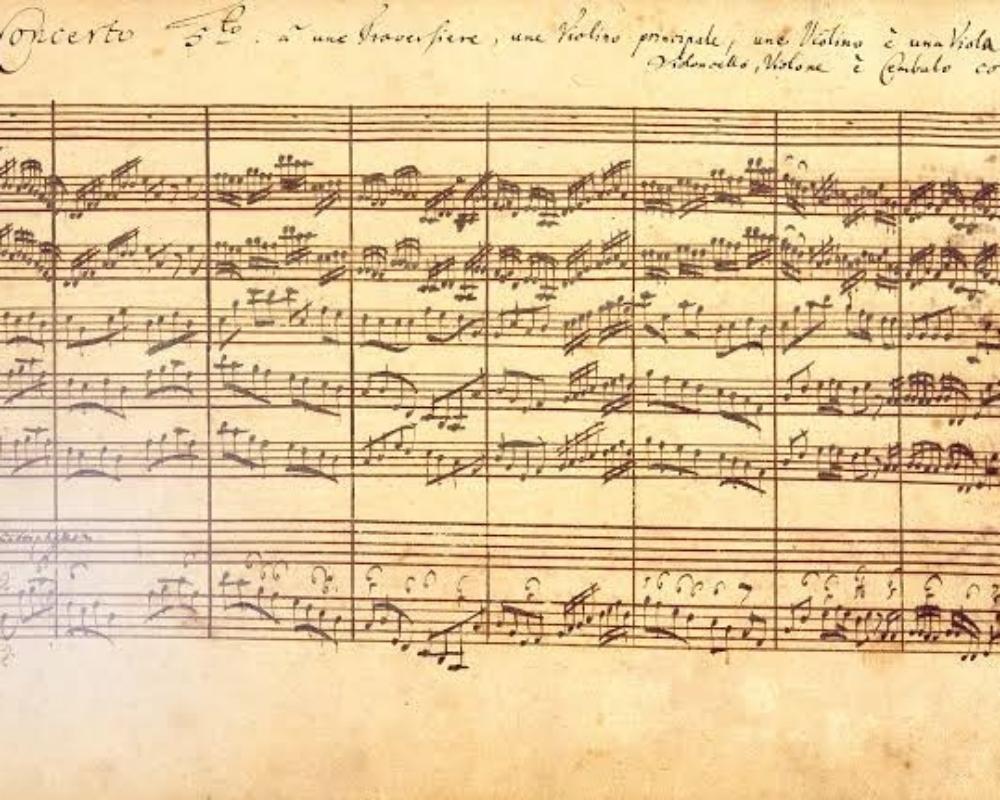 Concerto 5to. à une Traversiere, une Violino principale, une Violino è una Viola
Violoncello, Violone è Cembalo co